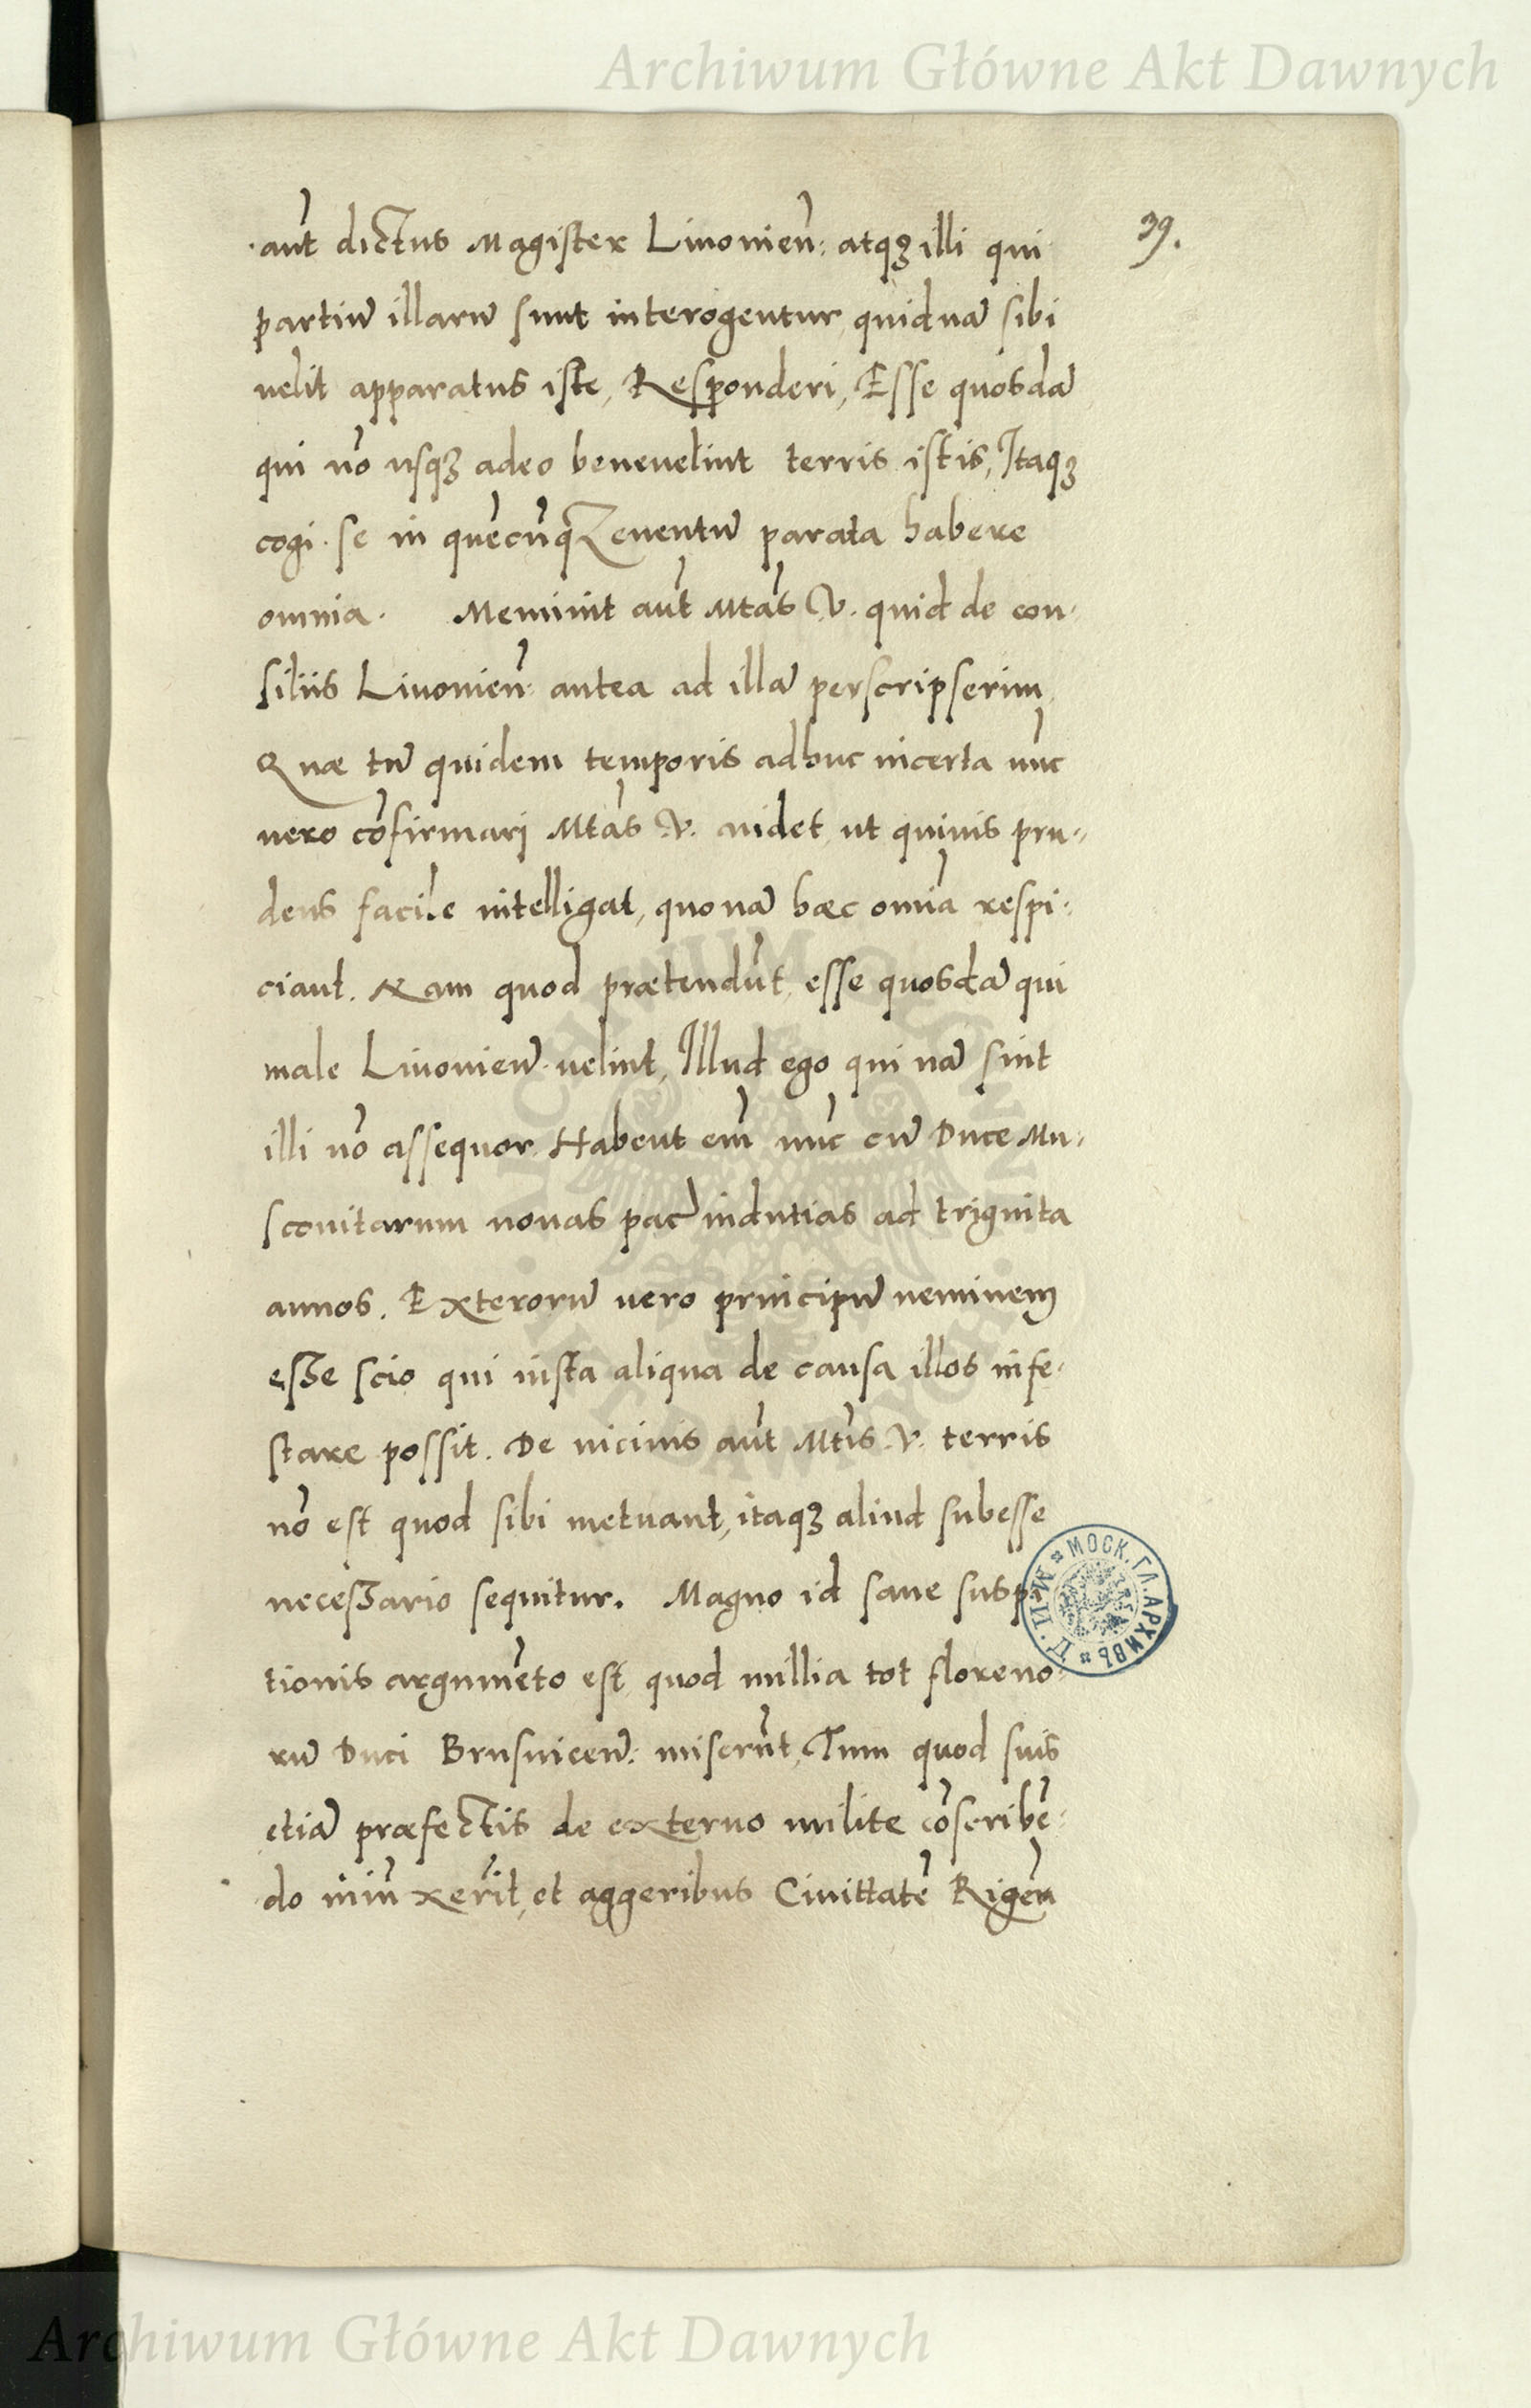 Archiwum Główne Akt Dawnych
39.
aūt dictus Magister Liuonien̄: atqȝ illi qui
partiū illarū sunt interogentur, quidnā sibi
uelit apparatus iste, Responderi, Esse quosdā
qui nō usqȝ adeo beneuelint terris istis, Itaqȝ
cogi se in quēcūqȝ euentū parata habere
omnia. Meminit aūt Mtās V. quid de con-
siliis Liuonien̄: antea ad illā perscripserim,
Quæ tū quidem temporis adhuc incerta nūc
uero cōfirmari Mtās V. uidet, ut quiuis pru-
dens facile intelligat, quonā hæc omīa respi-
ciant. Nam quod prætendūt, esse quosdā qui
male Liuonien̄. uelint, Illud ego qui nā sint
illi nō assequor. Habent em̄ nūc cū Duce Mu-
scouitarum nouas pac̄ indutias ad triginta
annos. Exterorū uero principū neminem
esse scio qui iusta aliqua de causa illos infe-
stare possit. De uicinis aūt Mtīs V. terris
nō est quod sibi metuant, itaqȝ aliud subesse
necessario sequitur. Magno id sane suspi-
tionis argumēto est, quod millia tot floreno-
rū Duci Brusuicen̄: miserūt, Tum quod suis
etiā præfectis de externo milite cōscribē-
do iniūxerīt, et aggeribus Ciuittatē Rigen̄
МОСК. ГЛ. АРХИВЪ
М. И. Д.
Archiwum Główne Akt Dawnych